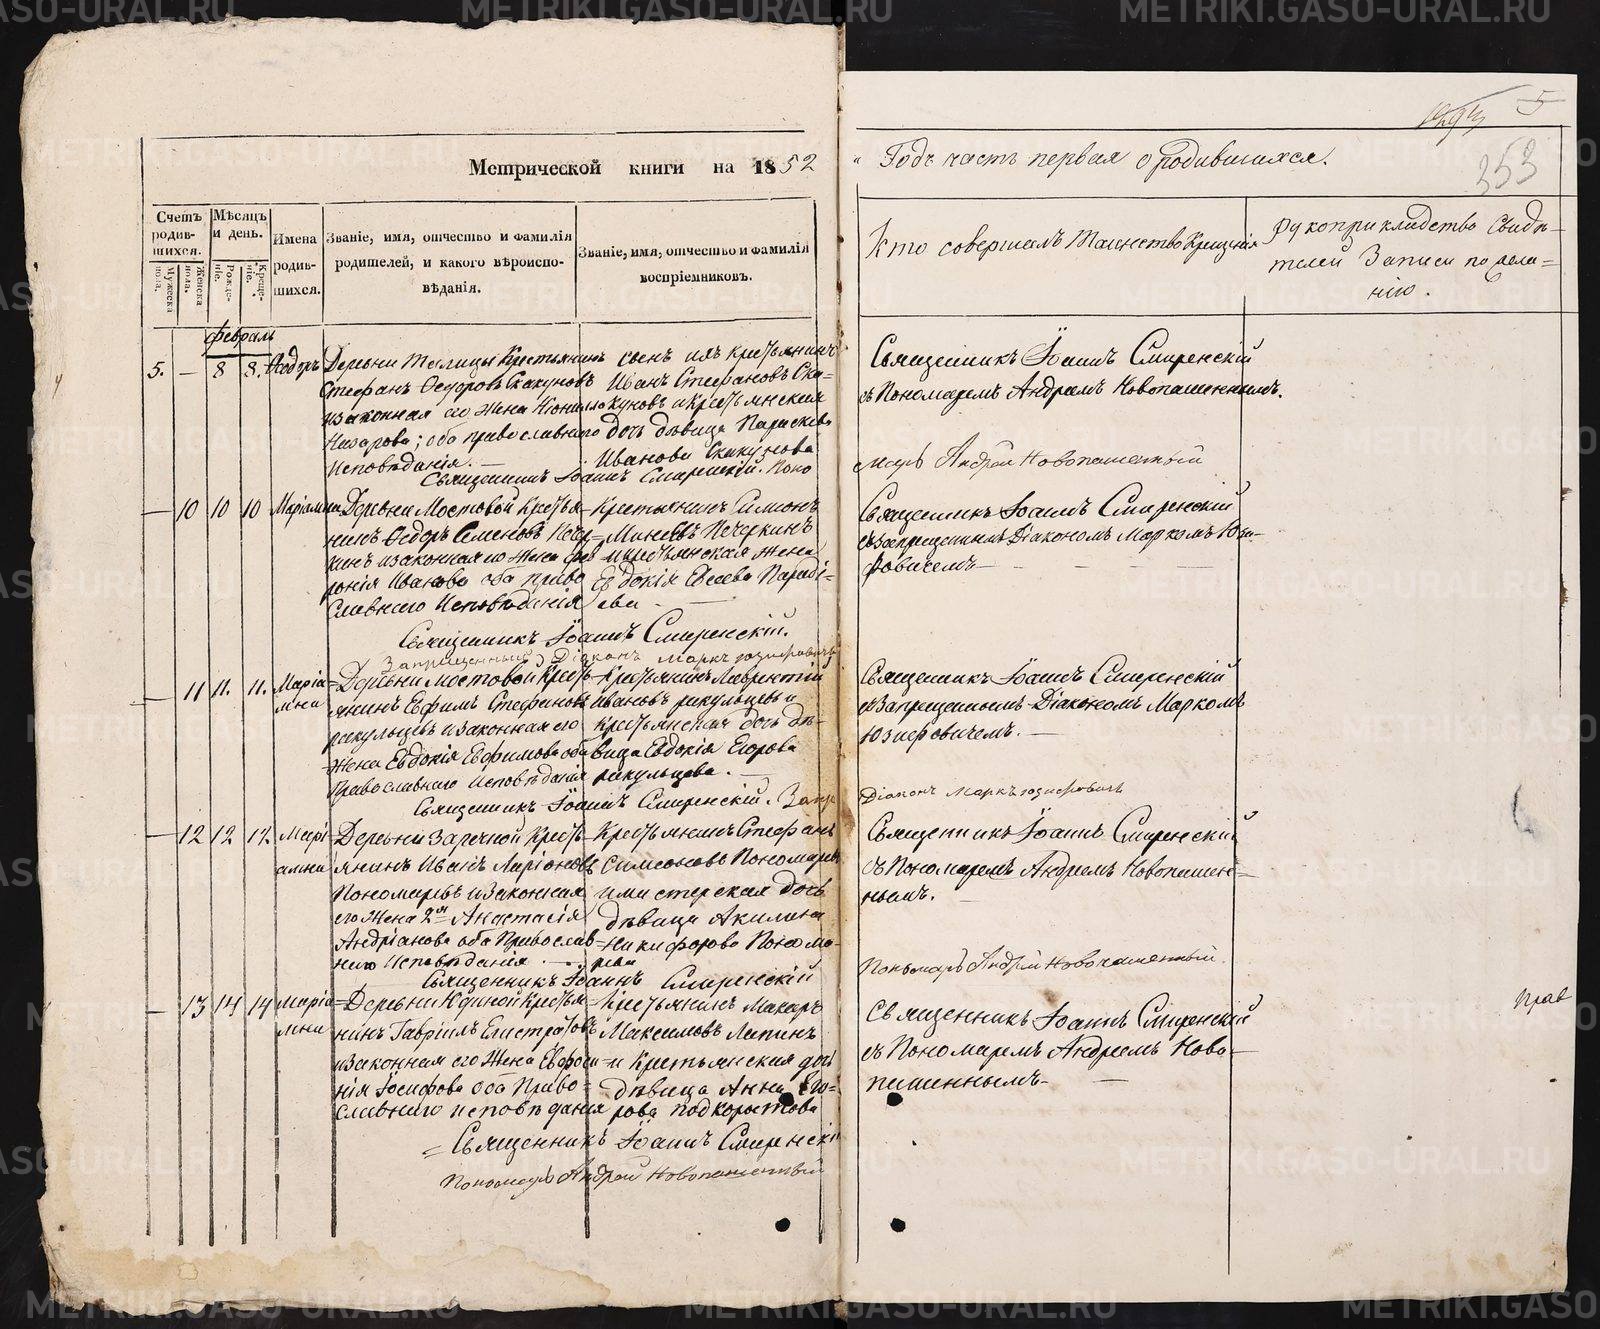 METRIKI.GASO-URAL.RU
5
353
Метрической книги на 1852
Годъ часть первая о родившихся.
Счетъ родив-шихся.
Мужеска пола.
Женска пола.
Мѣсяцъ и день.
Рожде-ніе.
Креще-ніе.
Имена родив-шихся.
Званіе, имя, отчество и фамилія родителей, и какого вѣроиспо-вѣданія.
Званіе, имя, отчество и фамилія воспріемниковъ.
Кто совершалъ Таинство Крещенія
Рукоприкладство Свидѣ-
телей Записи по жела=
нію.
февраль
5. — 8 8. Ѳедоръ
Деревни Крестьянинъ
Стефанъ Ѳедоровъ Скакуновъ
и законная его жена
Назарова; оба православнаго
Исповѣданія. —
сынъ ихъ крестьянинъ
Иванъ Стефановъ Ска=
куновъ и крестьянская
дочь дѣвица Параскева
Иванова Скакунова
Священникъ Іоаннъ Смиренскій. Поно
Священникъ Іоаннъ Смиренскій
съ Пономаремъ Андреемъ Новопашеннымъ.
марь Андрей Новопашенный
— 10 10 10 Маріамна
Деревни Мостовой Кресть-
янинъ Ѳедоръ Семеновъ Пече=
кинъ и законная его жена Фев
ронія Иванова оба право
Славнаго Исповѣданія
Крестьянинъ Симіонъ
Минѣевъ Печеркинъ
и крестьянская жена
Евдокія Евсеева
ева —
Священникъ Іоаннъ Смиренскій.
Запрещенный Діаконъ Маркъ Юзифовичъ
Священникъ Іоаннъ Смиренскій
съ запрещеннымъ Діакономъ Маркомъ Юзи-
фовичемъ —
— 11 11. 11. Маріа=
мна
Деревни Мостовой Кресть-
янинъ Ефимъ Стефановъ
рякульцевъ и законная его
жена Евдокія Ефимова оба
Православнаго Исповѣданія
Крестьянинъ Лаврентій
Ивановъ рякульцевъ и
Крестьянская дочь дѣ=
вица Евдокія Егорова
рякульцева. —
Священникъ Іоаннъ Смиренскій. Запр
Священникъ Іоаннъ Смиренскій
съ запрещеннымъ Діакономъ Маркомъ
Юзифовичемъ. —
Діаконъ Маркъ Юзифовичъ
— 12 12 12. Марі
амна
Деревни Заречной Кресть-
янинъ Иванъ Ларіоновъ
Пономаревъ и Законная
его Жена 2я Анастасія
Андріанова оба Православ=
наго Исповѣданія. —
Крестьянинъ Стефанъ
Симеоновъ Пономаревъ
и мастерская дочь
дѣвица Акилина
Никифорова Понома-
рева
Священникъ Іоаннъ Смиренскій
Священникъ Іоаннъ Смиренскій
съ Пономаремъ Андреемъ Новопашен=
нымъ. —
Пономарь Андрей Новопашенный.
— 13 14 14 Маріа=
мна
Деревни Юдиной Крестья-
нинъ Гавріилъ Елистратовъ
и законная его Жена Евфроси
нія Іосифова оба Право=
славнаго исповѣданія
Крестьянинъ Макаръ
Максимовъ Лапинъ
и Крестьянская дочь
дѣвица Анна Его=
рова подкорытова
= Священникъ Іоаннъ Смиренскій
Пономарь Андрей Новопашенный
Священникъ Іоаннъ Смиренскій
съ Пономаремъ Андреемъ Ново-
пашеннымъ —
Прав